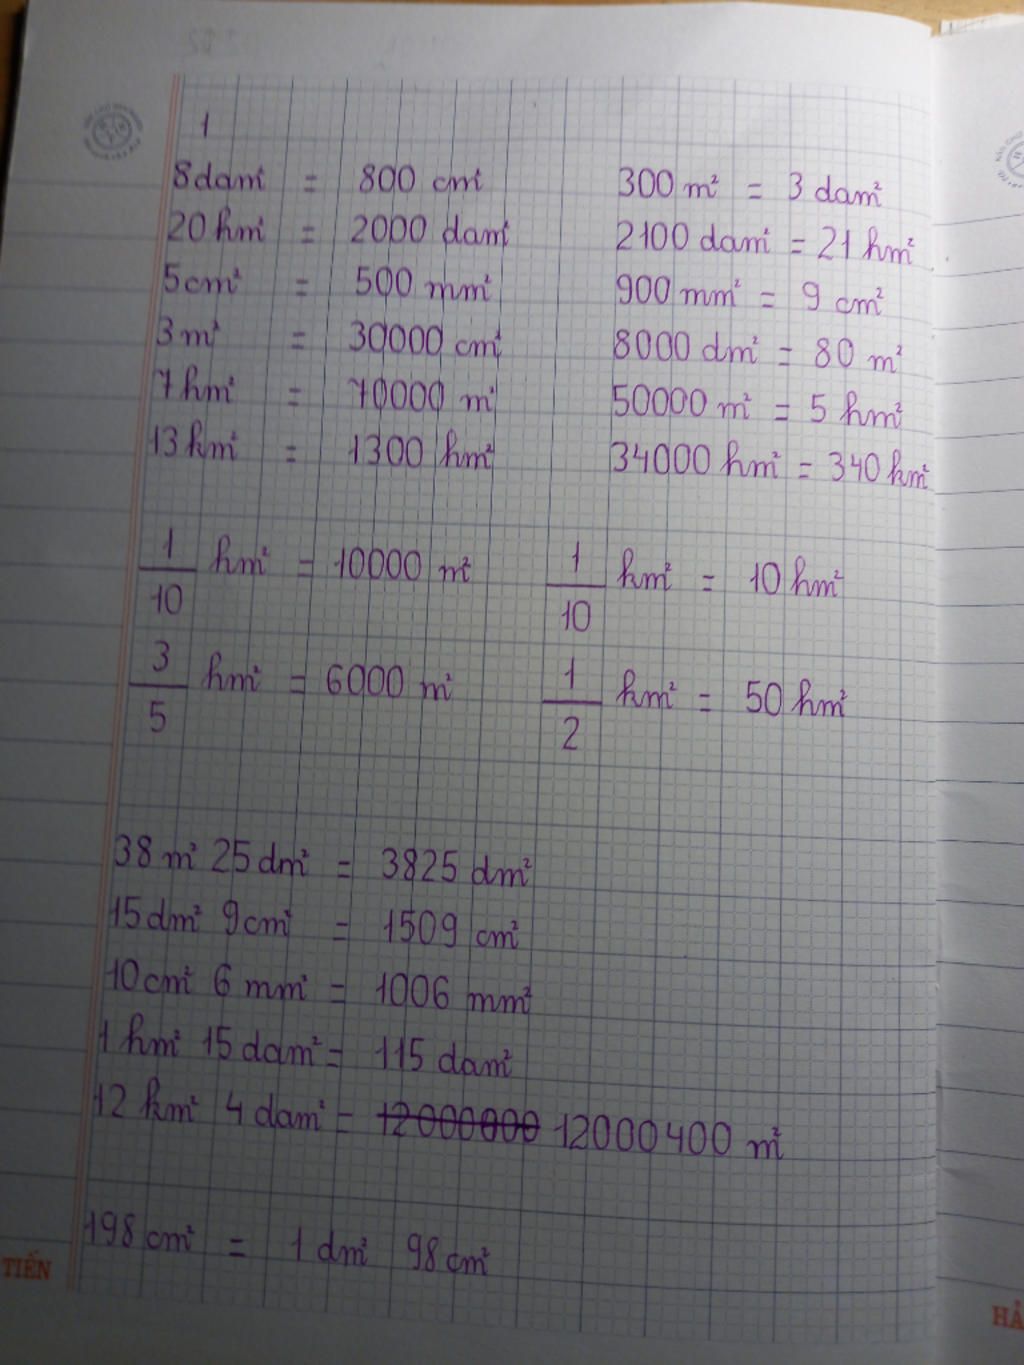 1
8dam² = 800 cm² 300 m² = 3 dam²
20 hm² = 2000 dam² 2100 dam² = 21 hm²
5cm² = 500 mm² 900 mm² = 9 cm²
3 m² = 30000 cm² 8000 dm² = 80 m²
7 hm² = 70000 m² 50000 m² = 5 hm²
13 km² = 1300 hm² 34000 hm² = 340 km²
1/10 hm² = 10000 m² 1/10 km² = 10 hm²
3/5 hm² = 6000 m² 1/2 km² = 50 hm²
38 m² 25 dm² = 3825 dm²
15 dm² 9 cm² = 1509 cm²
10 cm² 6 mm² = 1006 mm²
1 hm² 15 dam² = 115 dam²
12 km² 4 dam² = 12000000 12000400 m²
198 cm² = 1 dm² 98 cm²
TIẾN
HẢ